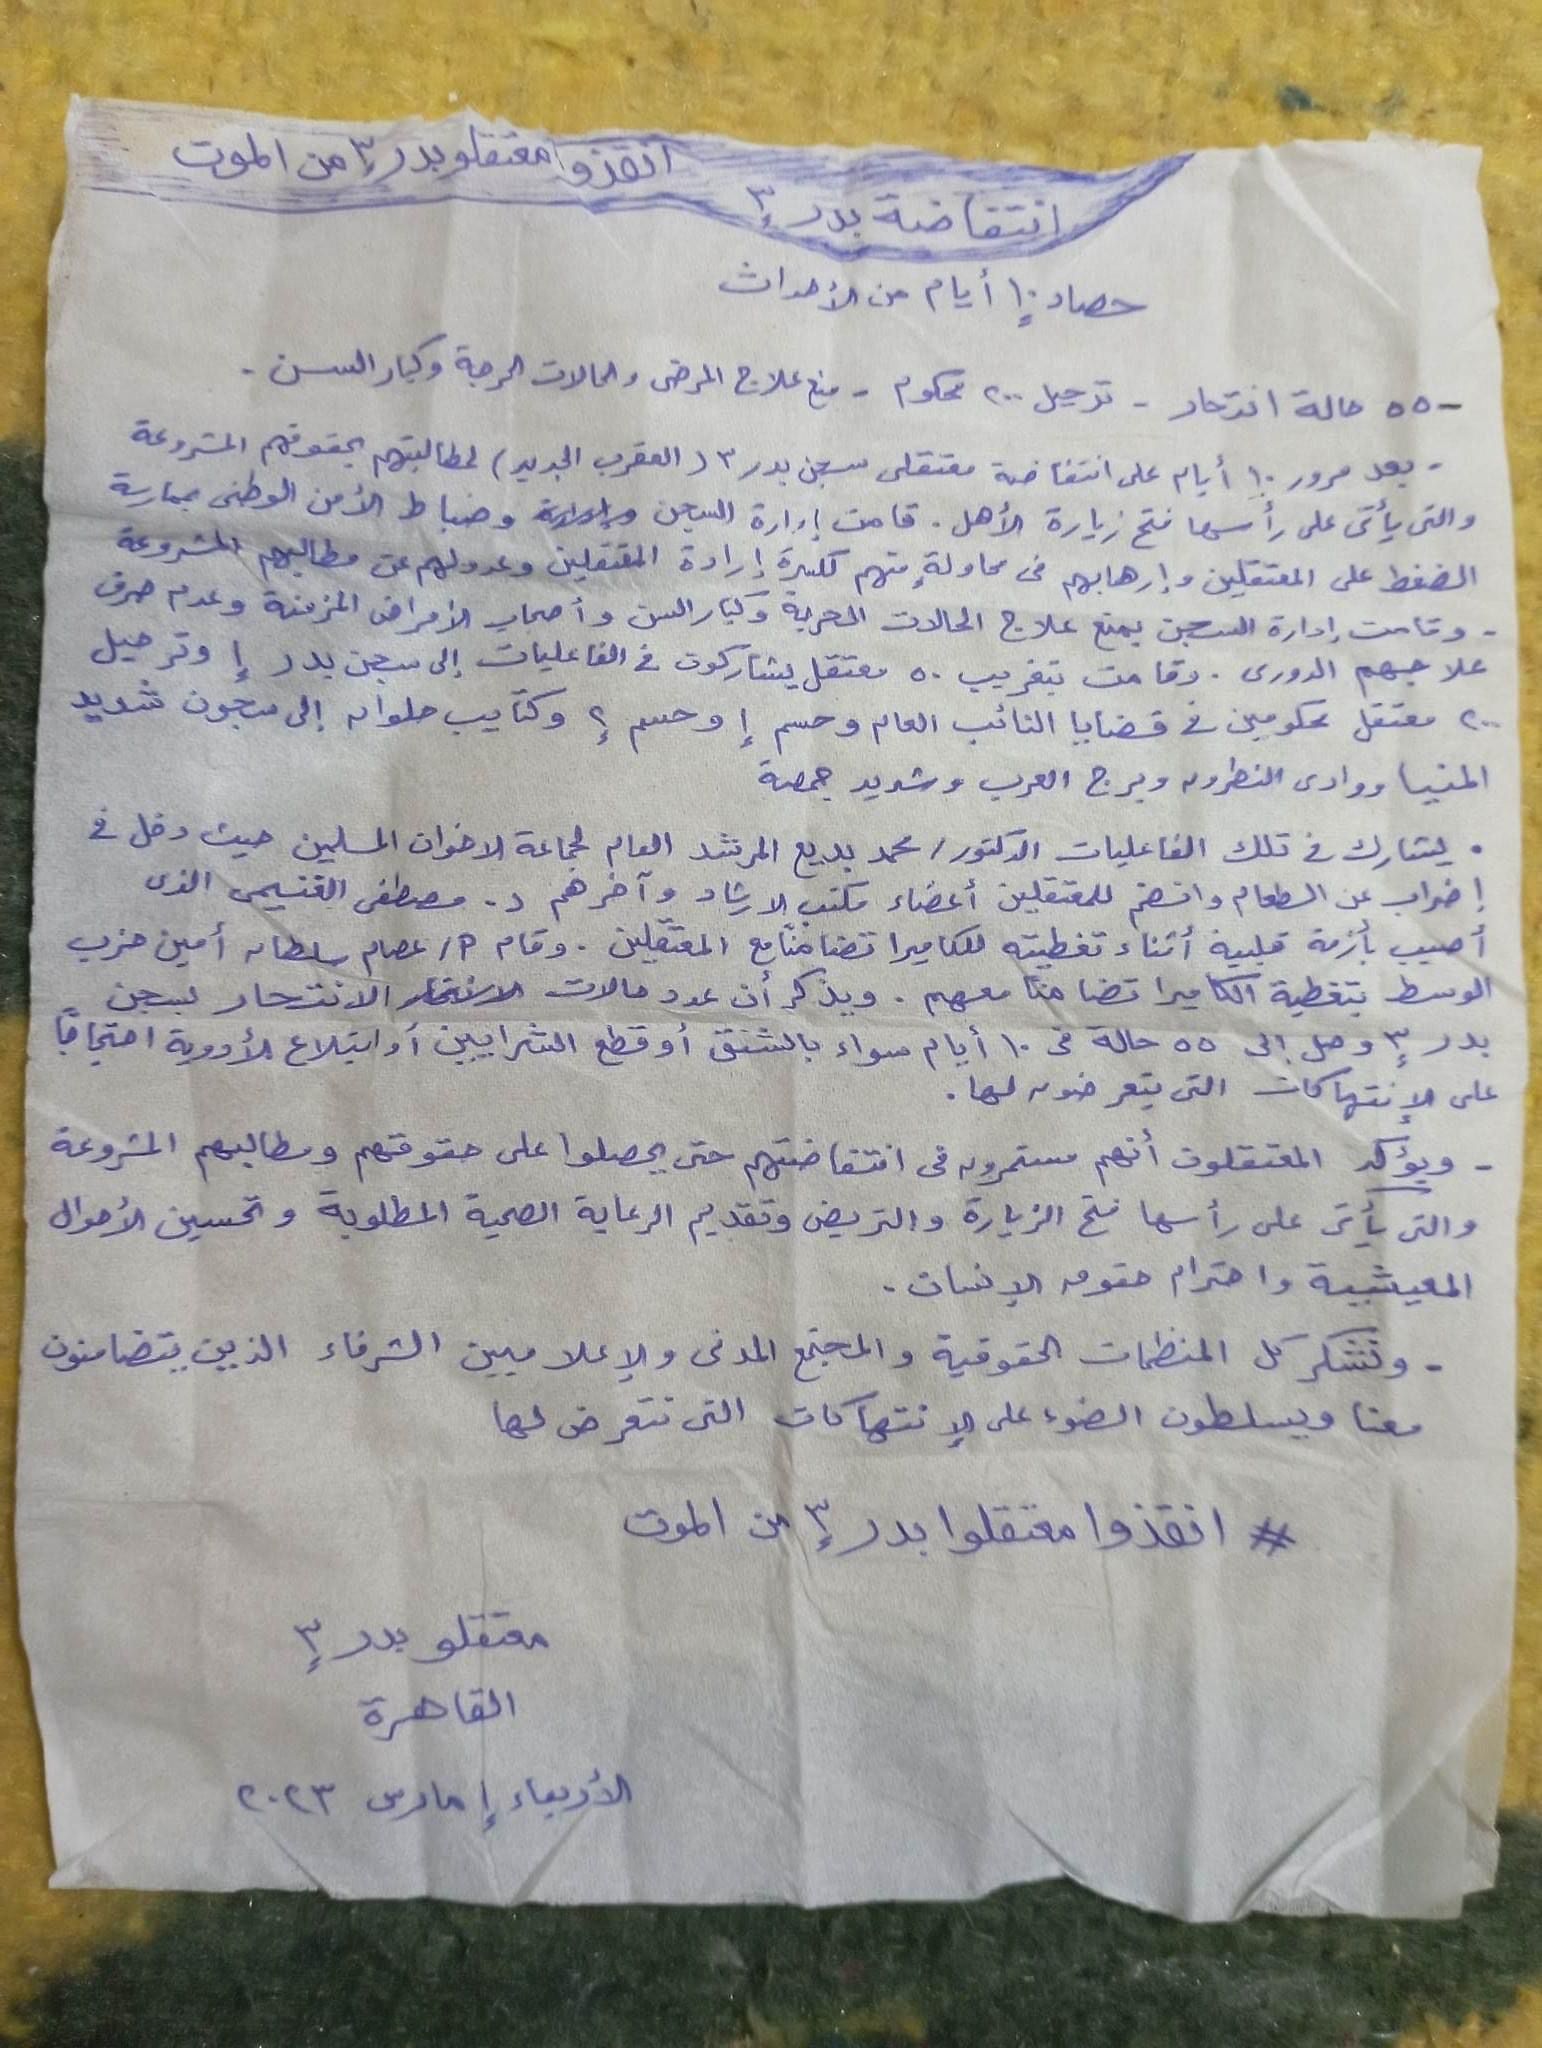 انقذوا معتقلو بدر ٣ من الموت
انتفاضة بدر ٣
حصاد ١٠ أيام من الأحداث
- ٥٥ حالة انتحار - ترحيل ٢٠٠ محكوم - منع علاج المرضى والحالات الحرجة وكبار السن -
- بعد مرور ١٠ أيام على انتفاضة معتقلى سجن بدر ٣ (العقرب الجديد) لمطالبتهم بحقوقهم المشروعة
والتى يأتى على رأسها فتح زيارة الأهل . قامت إدارة السجن وضباط الأمن الوطنى بممارسة
الضغط على المعتقلين وإرهابهم فى محاولة منهم لكسرة إرادة المعتقلين وعدولهم عن مطالبهم المشروعة
- وقامت إدارة السجن بمنع علاج الحالات الحرجة وكبار السن وأصحاب الأمراض المزمنة وعدم صرف
علاجهم الدورى . وقامت بتغريب ٥٠ معتقل يشاركون فى الفاعليات إلى سجن بدر ١ وترحيل
٢٠٠ معتقل محكومين فى قضايا النائب العام وحسم ١ وحسم ٢ وكتائب حلوان إلى سجون شديد
المنيا ووادى النطرون وبرج العرب وشديد جمصة
• يشارك فى تلك الفاعليات الدكتور/ محمد بديع المرشد العام لجماعة الاخوان المسلمين حيث دخل فى
إضراب عن الطعام وانضم للمعتقلين أعضاء مكتب الارشاد وآخرهم د. مصطفى الغنيمى الذى
أصيب بأزمة قلبية أثناء تغطيته للكاميرا تضامنًا مع المعتقلين . وقام م/ عصام سلطان أمين حزب
الوسط بتغطية الكاميرا تضامنًا معهم . ويذكر أن عدد حالات الانتحار بسجن
بدر ٣ وصل إلى ٥٥ حالة فى ١٠ أيام سواء بالشنق أو قطع الشرايين أو ابتلاع الأدوية احتجاجًا
على الإنتهاكات التى يتعرضون لها .
- ويؤكد المعتقلون أنهم مستمرون فى انتفاضتهم حتى يحصلوا على حقوقهم ومطالبهم المشروعة
والتى يأتى على رأسها فتح الزيارة والتريض وتقديم الرعاية الصحية المطلوبة وتحسين الأحوال
المعيشية واحترام حقوق الإنسان .
- ونشكر كل المنظمات الحقوقية والمجتمع المدنى والإعلاميين الشرفاء الذين يتضامنون
معنا ويسلطون الضوء على الإنتهاكات التى نتعرض لها
# انقذوا معتقلوا بدر ٣ من الموت
معتقلو بدر ٣
القاهرة
الأربعاء ١ مارس ٢٠٢٣